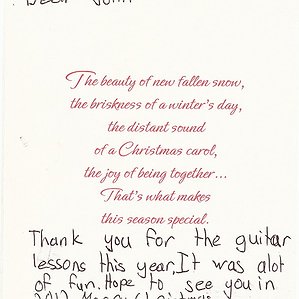 Dear John
The beauty of new fallen snow,
the briskness of a winter's day,
the distant sound
of a Christmas carol,
the joy of being together...
That's what makes
this season special.
Thank you for the guitar
lessons this year. It was alot
of fun. Hope to see you in
2012 Merry Christmas